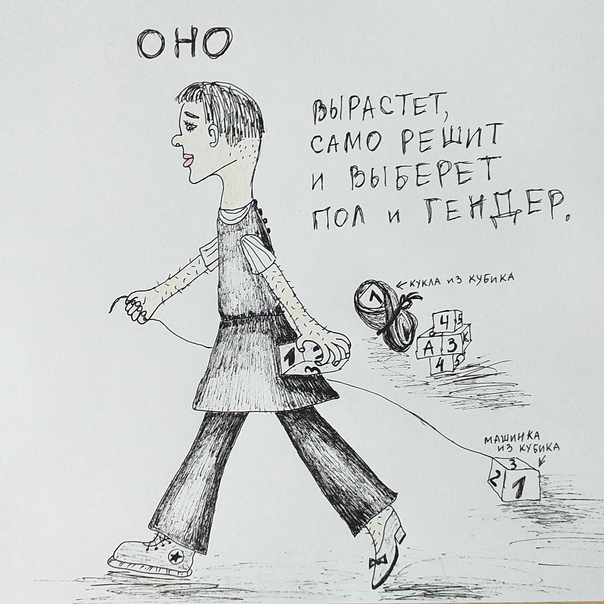 ОНО
ВЫРАСТЕТ,
САМО РЕШИТ
И ВЫБЕРЕТ
ПОЛ И ГЕНДЕР.
1
← КУКЛА ИЗ КУБИКА
4 5
А 3 К
4 5
1
3
МАШИНКА
ИЗ КУБИКА
3
2 1